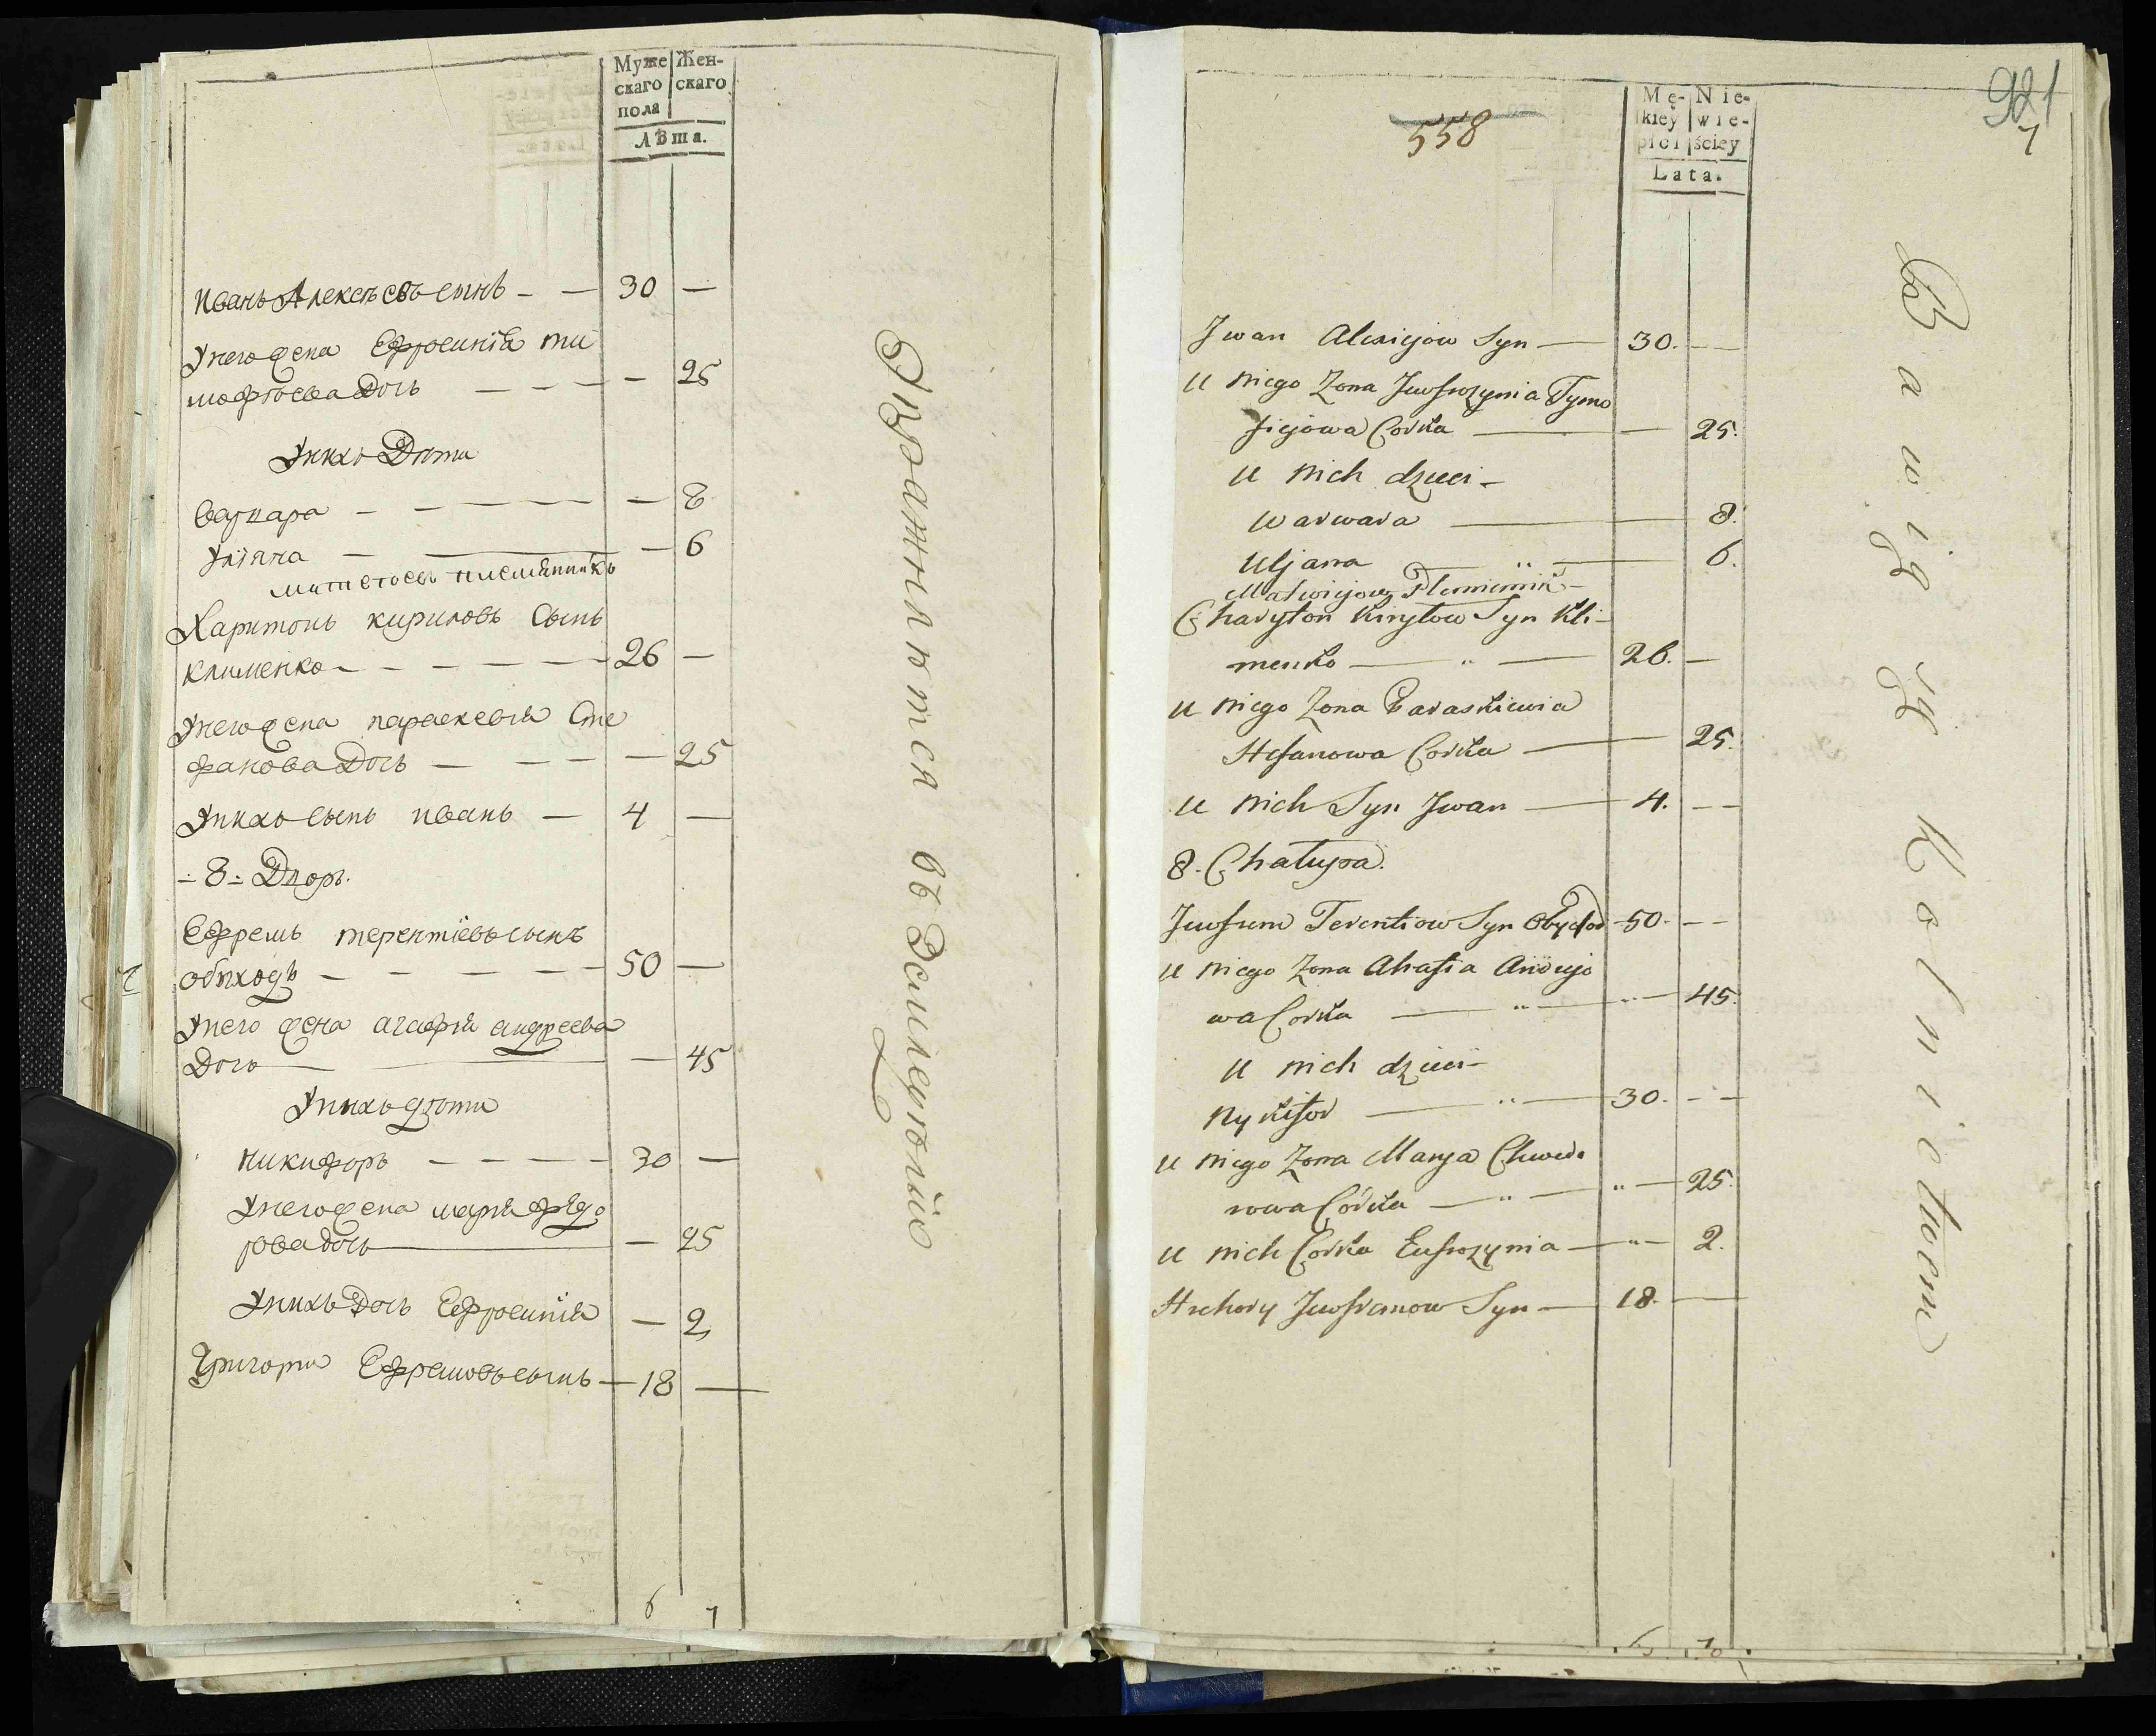 Муже Жен-
скаго скаго
пола
Лѣта.
Иванъ Алексѣевъ сынъ - — 30 —
Унего жена Ефросинія ти
мофѣева Дочь — — — — 25
Унихъ Дѣти
Варвара — — — — 8
Уліяна — — — 6
Матвѣевъ племянникъ
Харитонъ Кириловъ Сынъ
Клименко - — — — 26 —
Унего жена параскевія Сте
фанова Дочь — — — — 25
Унихъ сынъ иванъ — 4 —
8 Дворъ.
Ефремъ терентіевъ сынъ
обиходъ — — — — 50 —
Унего жена агафія андреева
Дочь — — 45
Унихъ дѣти
Никифоръ — — — — 30 —
Унего жена марія фѣдо
рова дочь — — 25
Унихъ Дочь Ефросинія — 2
Григорий Ефремовъ сынъ — 18 —
6 7
Упражняются въ Земледѣліи
921
7
558
Mę- Nie-
kiey wie-
płci ściey
Lata.
Jwan Alexiejow Syn — 30. —
u niego Zona Jewfrozynia Tymo
fiejowa Corka — — 25.
u nich dzieci -
Warwara — — 8.
Uljana — „ — 6.
Matwiejow Plemiennik -
Charyton Kiryłow Syn Kli-
menko — „ — 26. —
u niego Zona Paraskiewia
Stefanowa Corka — 25.
u nich Syn Jwan — 4. —
8. Chałupa.
Jewfrem Terentiow Syn Obychod 50. —
u niego Zona Ahafia Andrejo
wa Corka — „ — „ — 45.
u nich dzieci -
Nykifor — „ — 30. - -
u niego Zona Marya Chwedo
rowa Córka — „ — „ — 25.
u nich Corka Eufrozynia — „ — 2.
Hrehory Jewfremow Syn — 18. —
Bawią się Rolnictwem